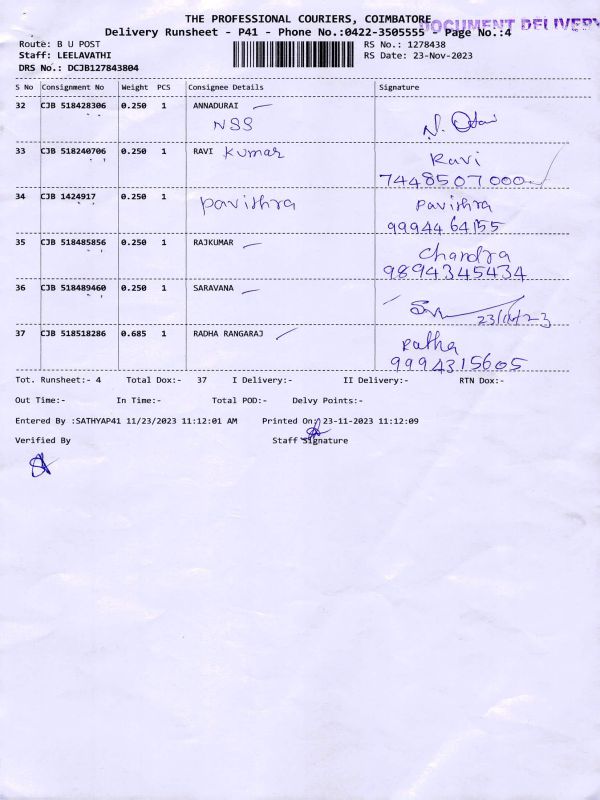 THE PROFESSIONAL COURIERS, COIMBATORE
DOCUMENT DELIVERY
Delivery Runsheet - P41 - Phone No.:0422-3505555 - Page No.:4
Route: B U POST RS No.: 1278438
Staff: LEELAVATHI RS Date: 23-Nov-2023
DRS No.: DCJB127843804
S No Consignment No Weight PCS Consignee Details Signature
32 CJB 518428306 0.250 1 ANNADURAI
NSS
33 CJB 518240706 0.250 1 RAVI Kumar Ravi
7448507000
34 CJB 1424917 0.250 1 Pavithra Pavithra
9994464155
35 CJB 518485856 0.250 1 RAJKUMAR Chandra
9894345434
36 CJB 518489460 0.250 1 SARAVANA
23/11/23
37 CJB 518518286 0.685 1 RADHA RANGARAJ Ratha
9994315605
Tot. Runsheet:- 4 Total Dox:- 37 I Delivery:- II Delivery:- RTN Dox:-
Out Time:- In Time:- Total POD:- Delvy Points:-
Entered By :SATHYAP41 11/23/2023 11:12:01 AM Printed On: 23-11-2023 11:12:09
Verified By Staff Signature